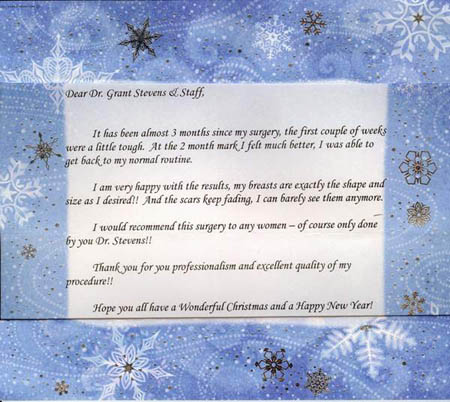 Dear Dr. Grant Stevens & Staff,
It has been almost 3 months since my surgery, the first couple of weeks
were a little tough. At the 2 month mark I felt much better, I was able to
get back to my normal routine.
I am very happy with the results, my breasts are exactly the shape and
size as I desired!! And the scars keep fading, I can barely see them anymore.
I would recommend this surgery to any women – of course only done
by you Dr. Stevens!!
Thank you for you professionalism and excellent quality of my
procedure!!
Hope you all have a Wonderful Christmas and a Happy New Year!